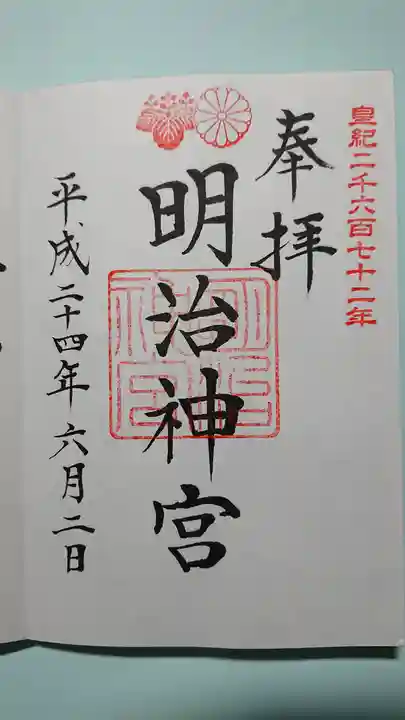 皇紀二千六百七十二年
奉拝
明治神宮
明治神宮
平成二十四年六月二日